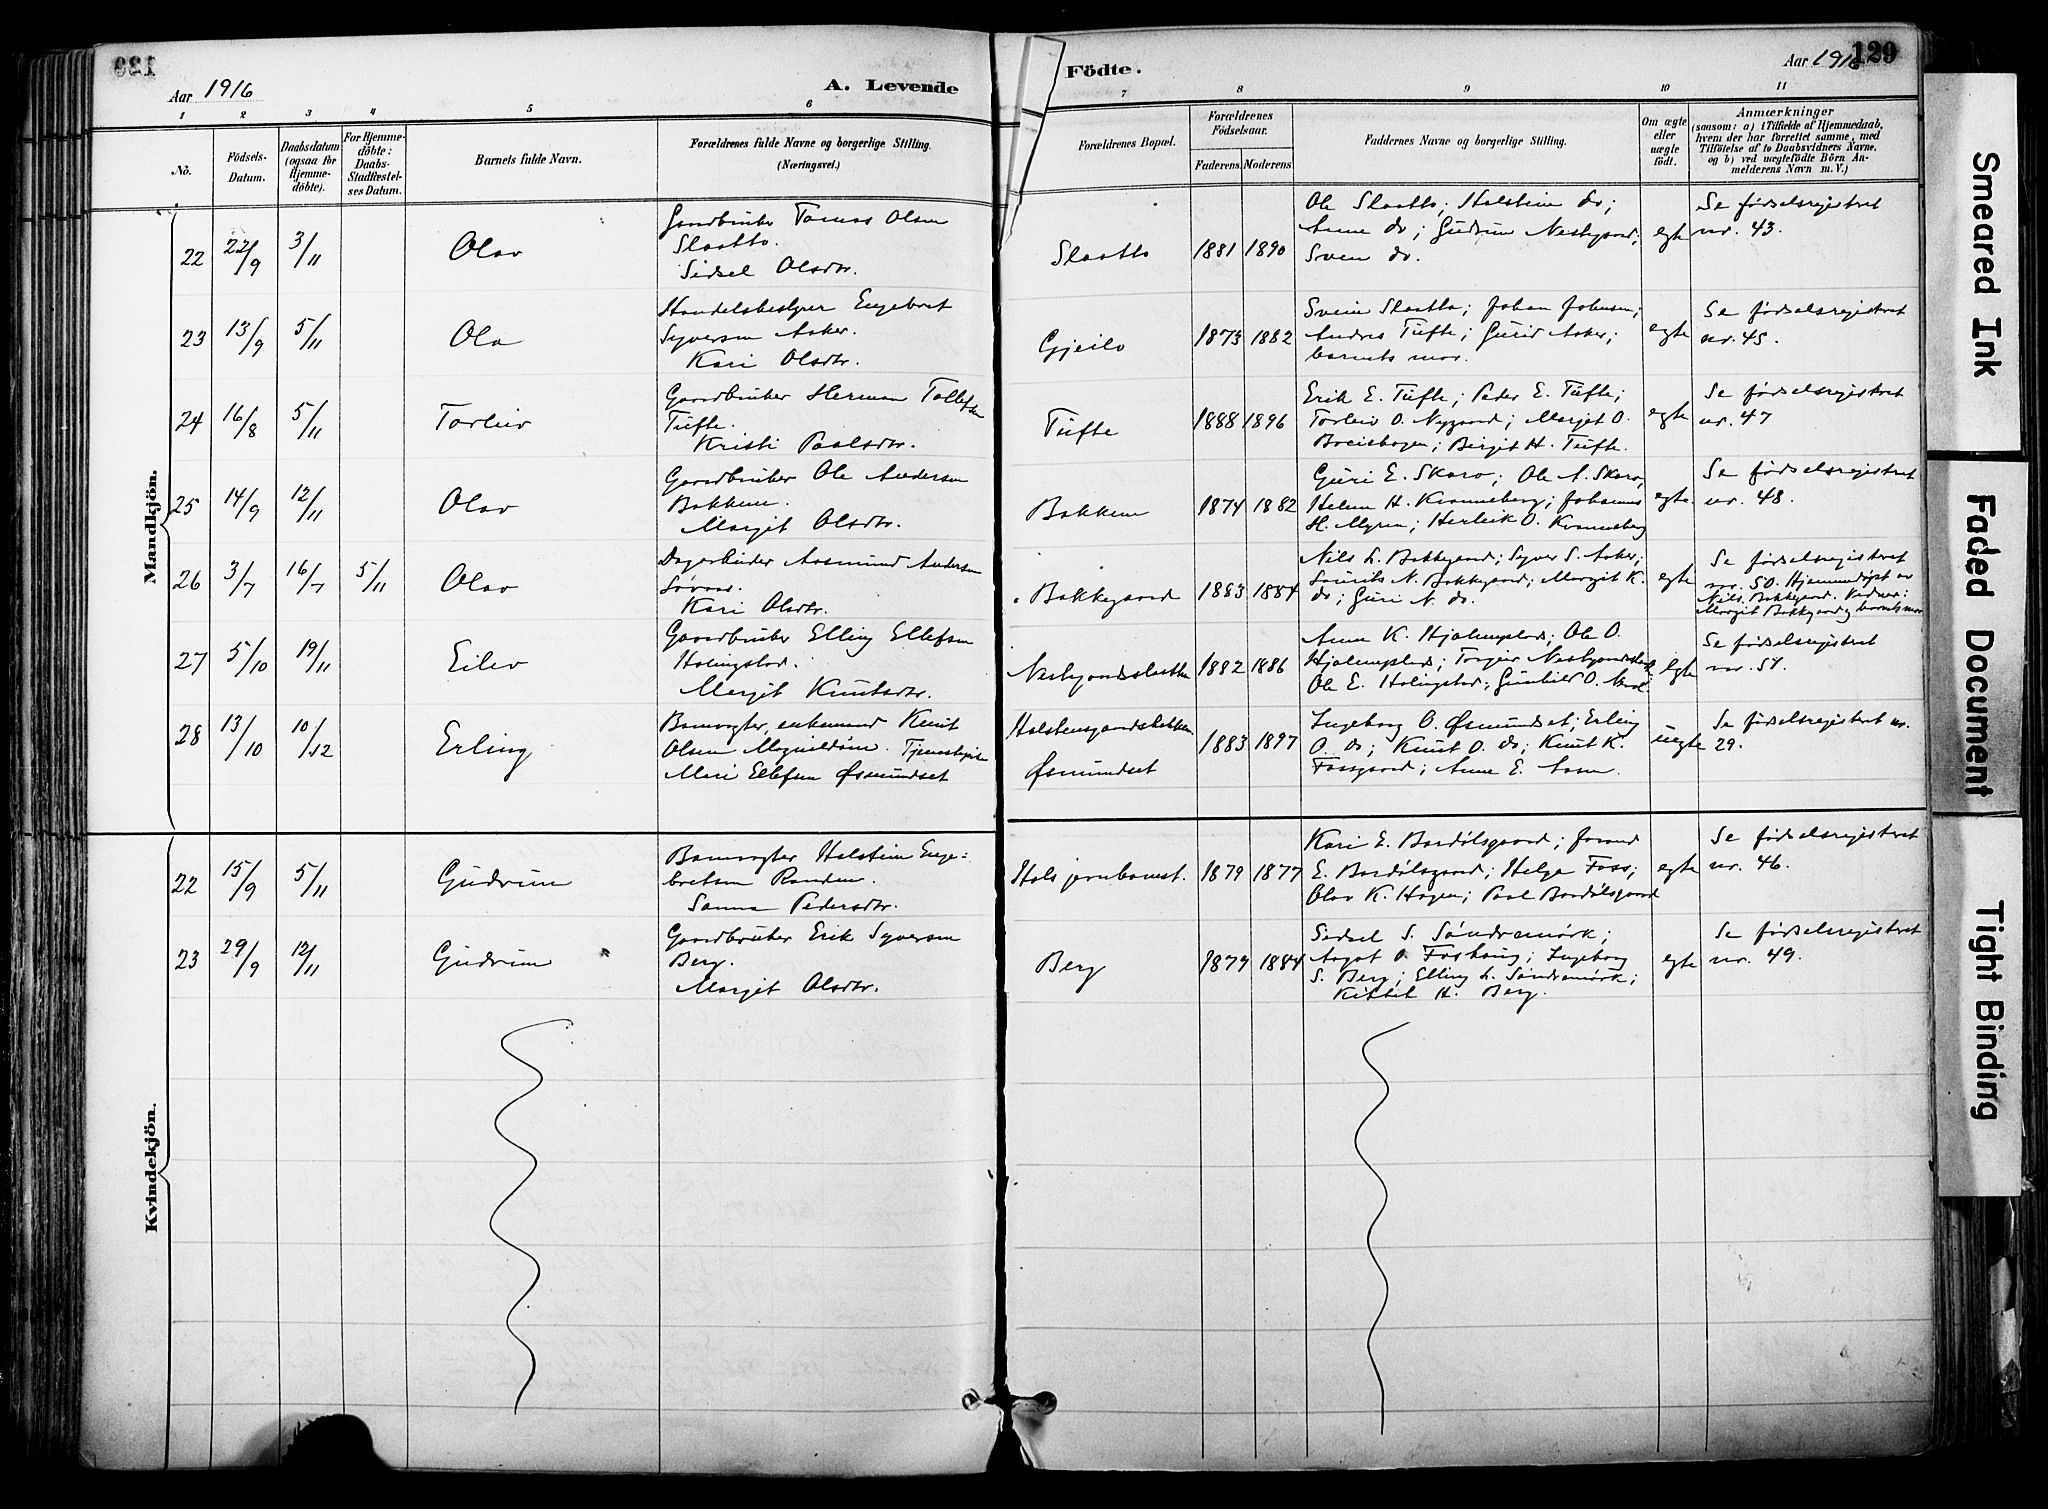 129
Aar 1916
A. Levende
Födte.
Aar 1916
129
1 2 3 4 5 6 7 8 9 10 11
No.
Födsels-
Datum.
Daabsdatum
(ogsaa for
Hjemme-
döbte).
For Hjemme-
döbte:
Daabs-
Stadfæstel-
ses Datum.
Barnets fulde Navn.
Forældrenes fulde Navne og borgerlige Stilling.
(Næringsvei.)
Forældrenes Bopæl.
Forældrenes
Födselsaar.
Faderens Moderens
Faddernes Navne og borgerlige Stilling.
Om ægte
eller
uægte
födt.
Anmærkninger
(saasom: a) i Tilfælde af Hjemmedaab,
hvem der har forrettet samme, med
Tilföielse af to Daabsvidners Navne,
og b) ved uægtefödte Börn An-
melderens Navn m. V.)
Mandkjön.
22 22/9 3/11 Olav
Gaardbruker Tomas Olsen
Slaatto.
Sidsel Olsdtr.
Slaatto 1881 1890
Ole Slaatto; Holstein do;
Anne do; Gudrun Nesbygaard;
Sven do.
egte
Se fødselsregistret
nr. 43.
23 13/9 5/11 Ola
Handelsbestyrer Engebret
Syversen Aaker.
Kari Olsdtr.
Gjeilo 1873 1882
Svein Slaatto; Johan Johnsen;
Andres Tufte; Gurid Aaker;
barnets mor.
egte
Se fødselsregistret
nr. 45.
24 16/8 5/11 Torleiv
Gaardbruker Herman Tollefsen
Tufte.
Kristi Paalsdtr.
Tufte 1888 1896
Erik E. Tufte; Peder E. Tufte;
Torleiv O. Nygaard; Margit O.
Breiehagen; Birgit H. Tufte.
egte
Se fødselsregistret
nr. 47
25 14/9 12/11 Olav
Gaardbruker Ole Andersen
Bakken.
Margit Olsdtr.
Bakken 1874 1882
Guri E. Skaro; Ole A. Skaro;
Helene H. Kranneberg; Johannes
H. Myren; Herleik O. Kranneberg
egte
Se fødselsregistret
nr. 48.
26 3/7 16/7 5/11 Olav
Dagarbeider Aasmund Andersen
Kari Olsdtr.
Bakkegaard 1883 1884
Nils L. Bakkegaard; Syver S. Aaker;
Laurits N. Bakkegaard; Margit K.
do; Guri N. do.
egte
Se fødselsregistret
nr. 50. Hjemmedøpt av
Nils Bakkegaard. Vidner:
Margit Bakkegaard og barnets mor
27 5/10 19/11 Eilev
Gaardbruker Elling Ellefsen
Holingstad.
Margit Knutsdtr.
Nesbyardsletten 1882 1886
Anne K. Hjalmplads; Ole O.
Hjalmplads; Torgeir
Ole E. Holingstad; Gunhild O.
egte
Se fødselsregistret
nr. 51.
28 13/10 10/12 Erling
Banevogter, enkemand Knut
Olsen Tjenestepike
Mari Ellefsen Øsmundset
Øsmundset
1883 1897
Ingeborg O. Øsmundset; Erling
O. do; Knut O. do; Knut K.
Fossgaard; Anne E. Aasen.
uegte
Se fødselsregistret nr.
29.
Kvindekjön.
22 15/9 5/11 Gudrun
Banevogter Holstein Enge-
bretsen Randen.
Sanna Pedersdtr.
Hols jernbanest. 1879 1877
Kari E. Bardølsgaard; Jorand
E. Bardølsgaard; Helge Foss;
Olav K. Hagen; Paal Bardølsgaard
egte
Se fødselsregistret
nr. 46.
23 29/9 12/11 Gudrun
Gaardbruker Erik Syversen
Berg.
Margit Olsdtr.
Berg 1879 1884
Sidsel S. Søndremørk;
Aagot O. Foshaug; Ingeborg
S. Berg; Elling L. Søndremørk;
Kittel H. Berg.
egte
Se fødselsregistret
nr. 49.
Smeared Ink
Faded Document
Tight Binding